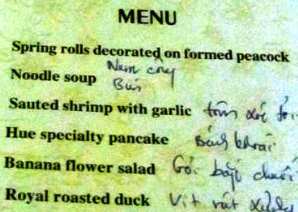 MENU
Spring rolls decorated on formed peacock
Nem công
Noodle soup Bún
Sauted shrimp with garlic tôm xóc tỏi
Hue specialty pancake Bánh khoái
Banana flower salad Gỏi bắp chuối
Royal roasted duck Vịt